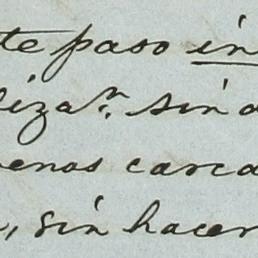 te paso in
lizar. sin
enos carca
, sin hacer